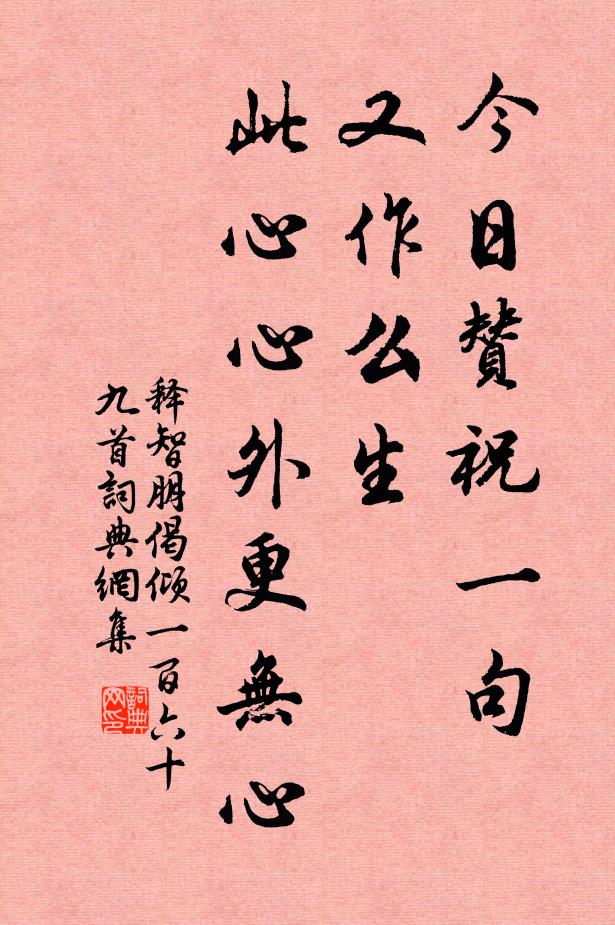 今日赞祝一句
又作么生
此心心外更無心
释智朋偈倾一百六十
九首詞典網集
詞典
网印